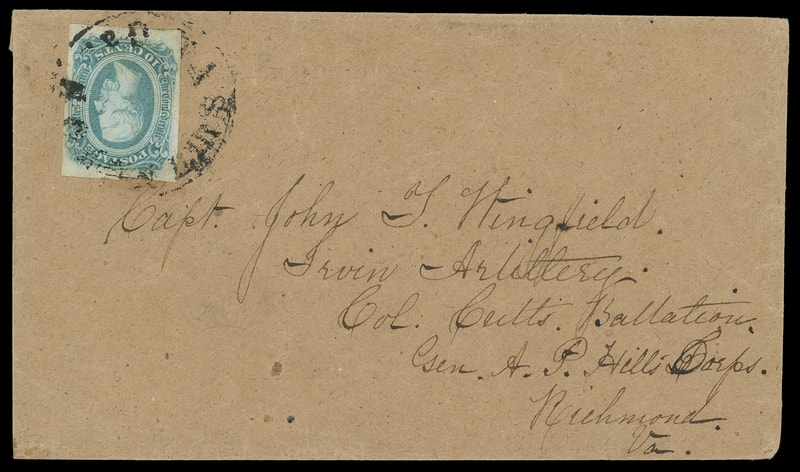 10 CENTS
POSTAGE
Capt. John T. Wingfield.
Irvin Artillery.
Col. Cutts. Battation.
Gen. A. P. Hills Corps.
Richmond.
Va.